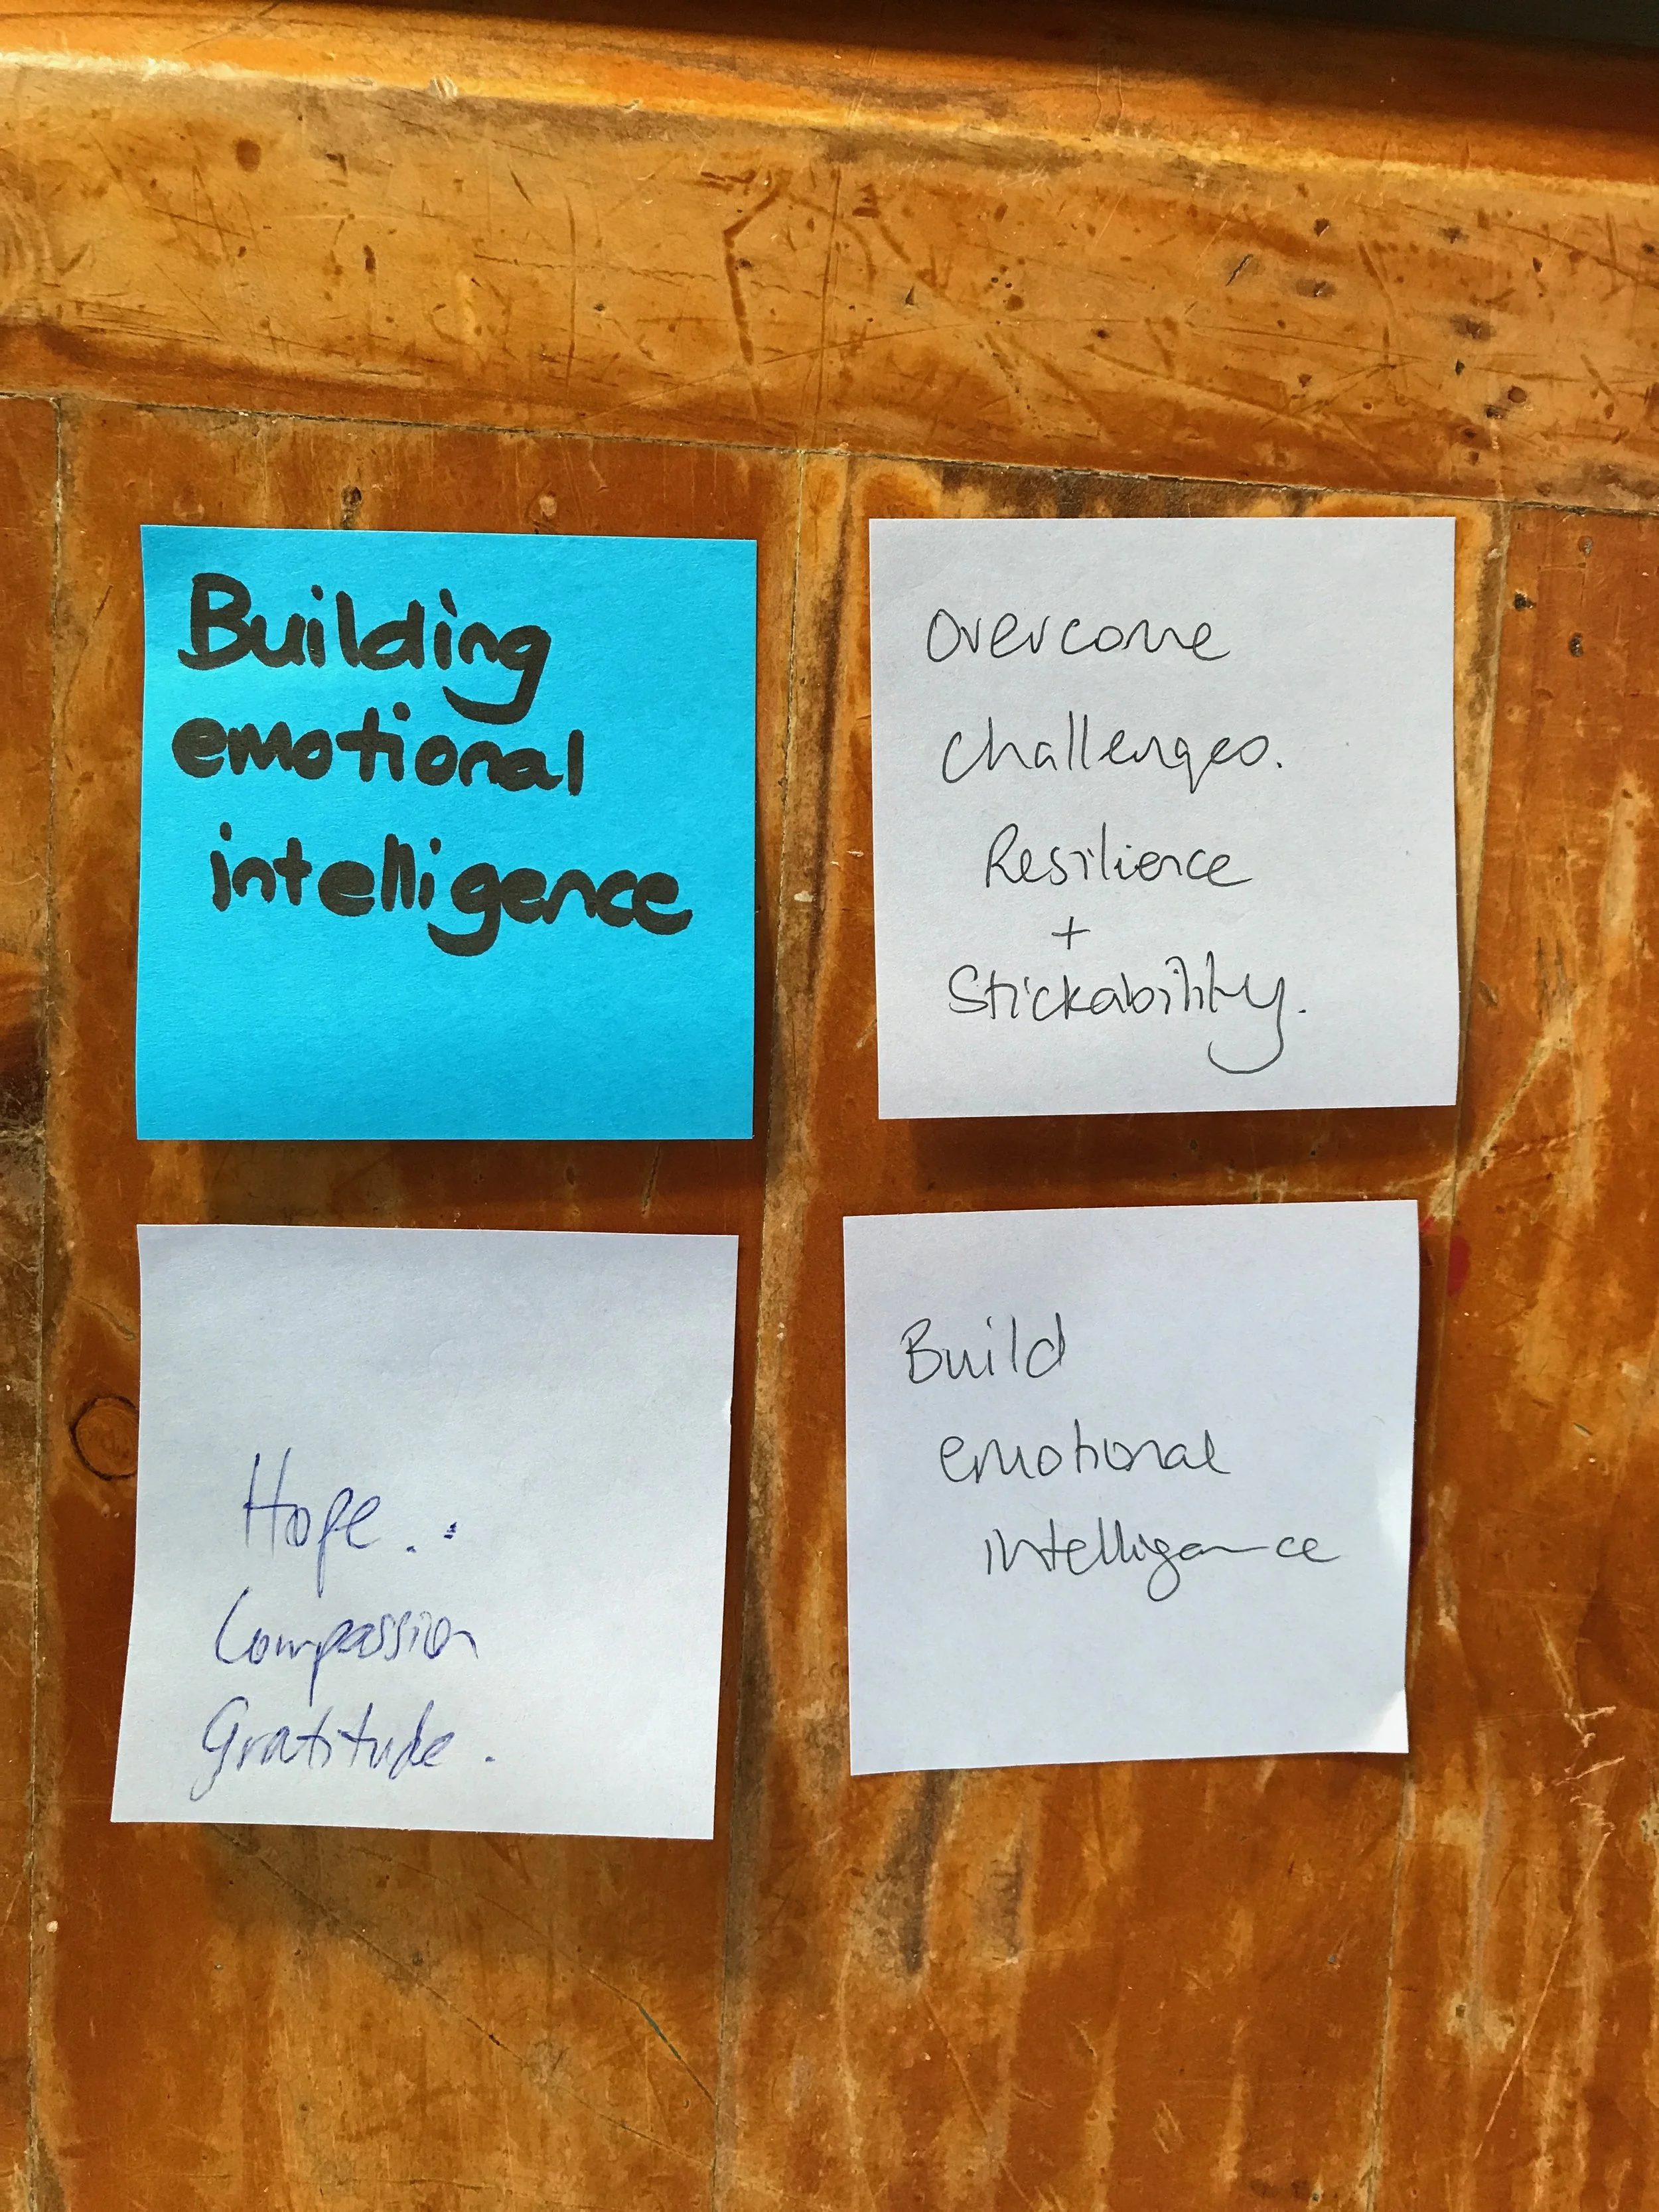 Building
emotional
intelligence
Overcome
challenges.
Resilience
+
Stickability.
Hope..
Compassion
Gratitude.
Build
emotional
intelligence